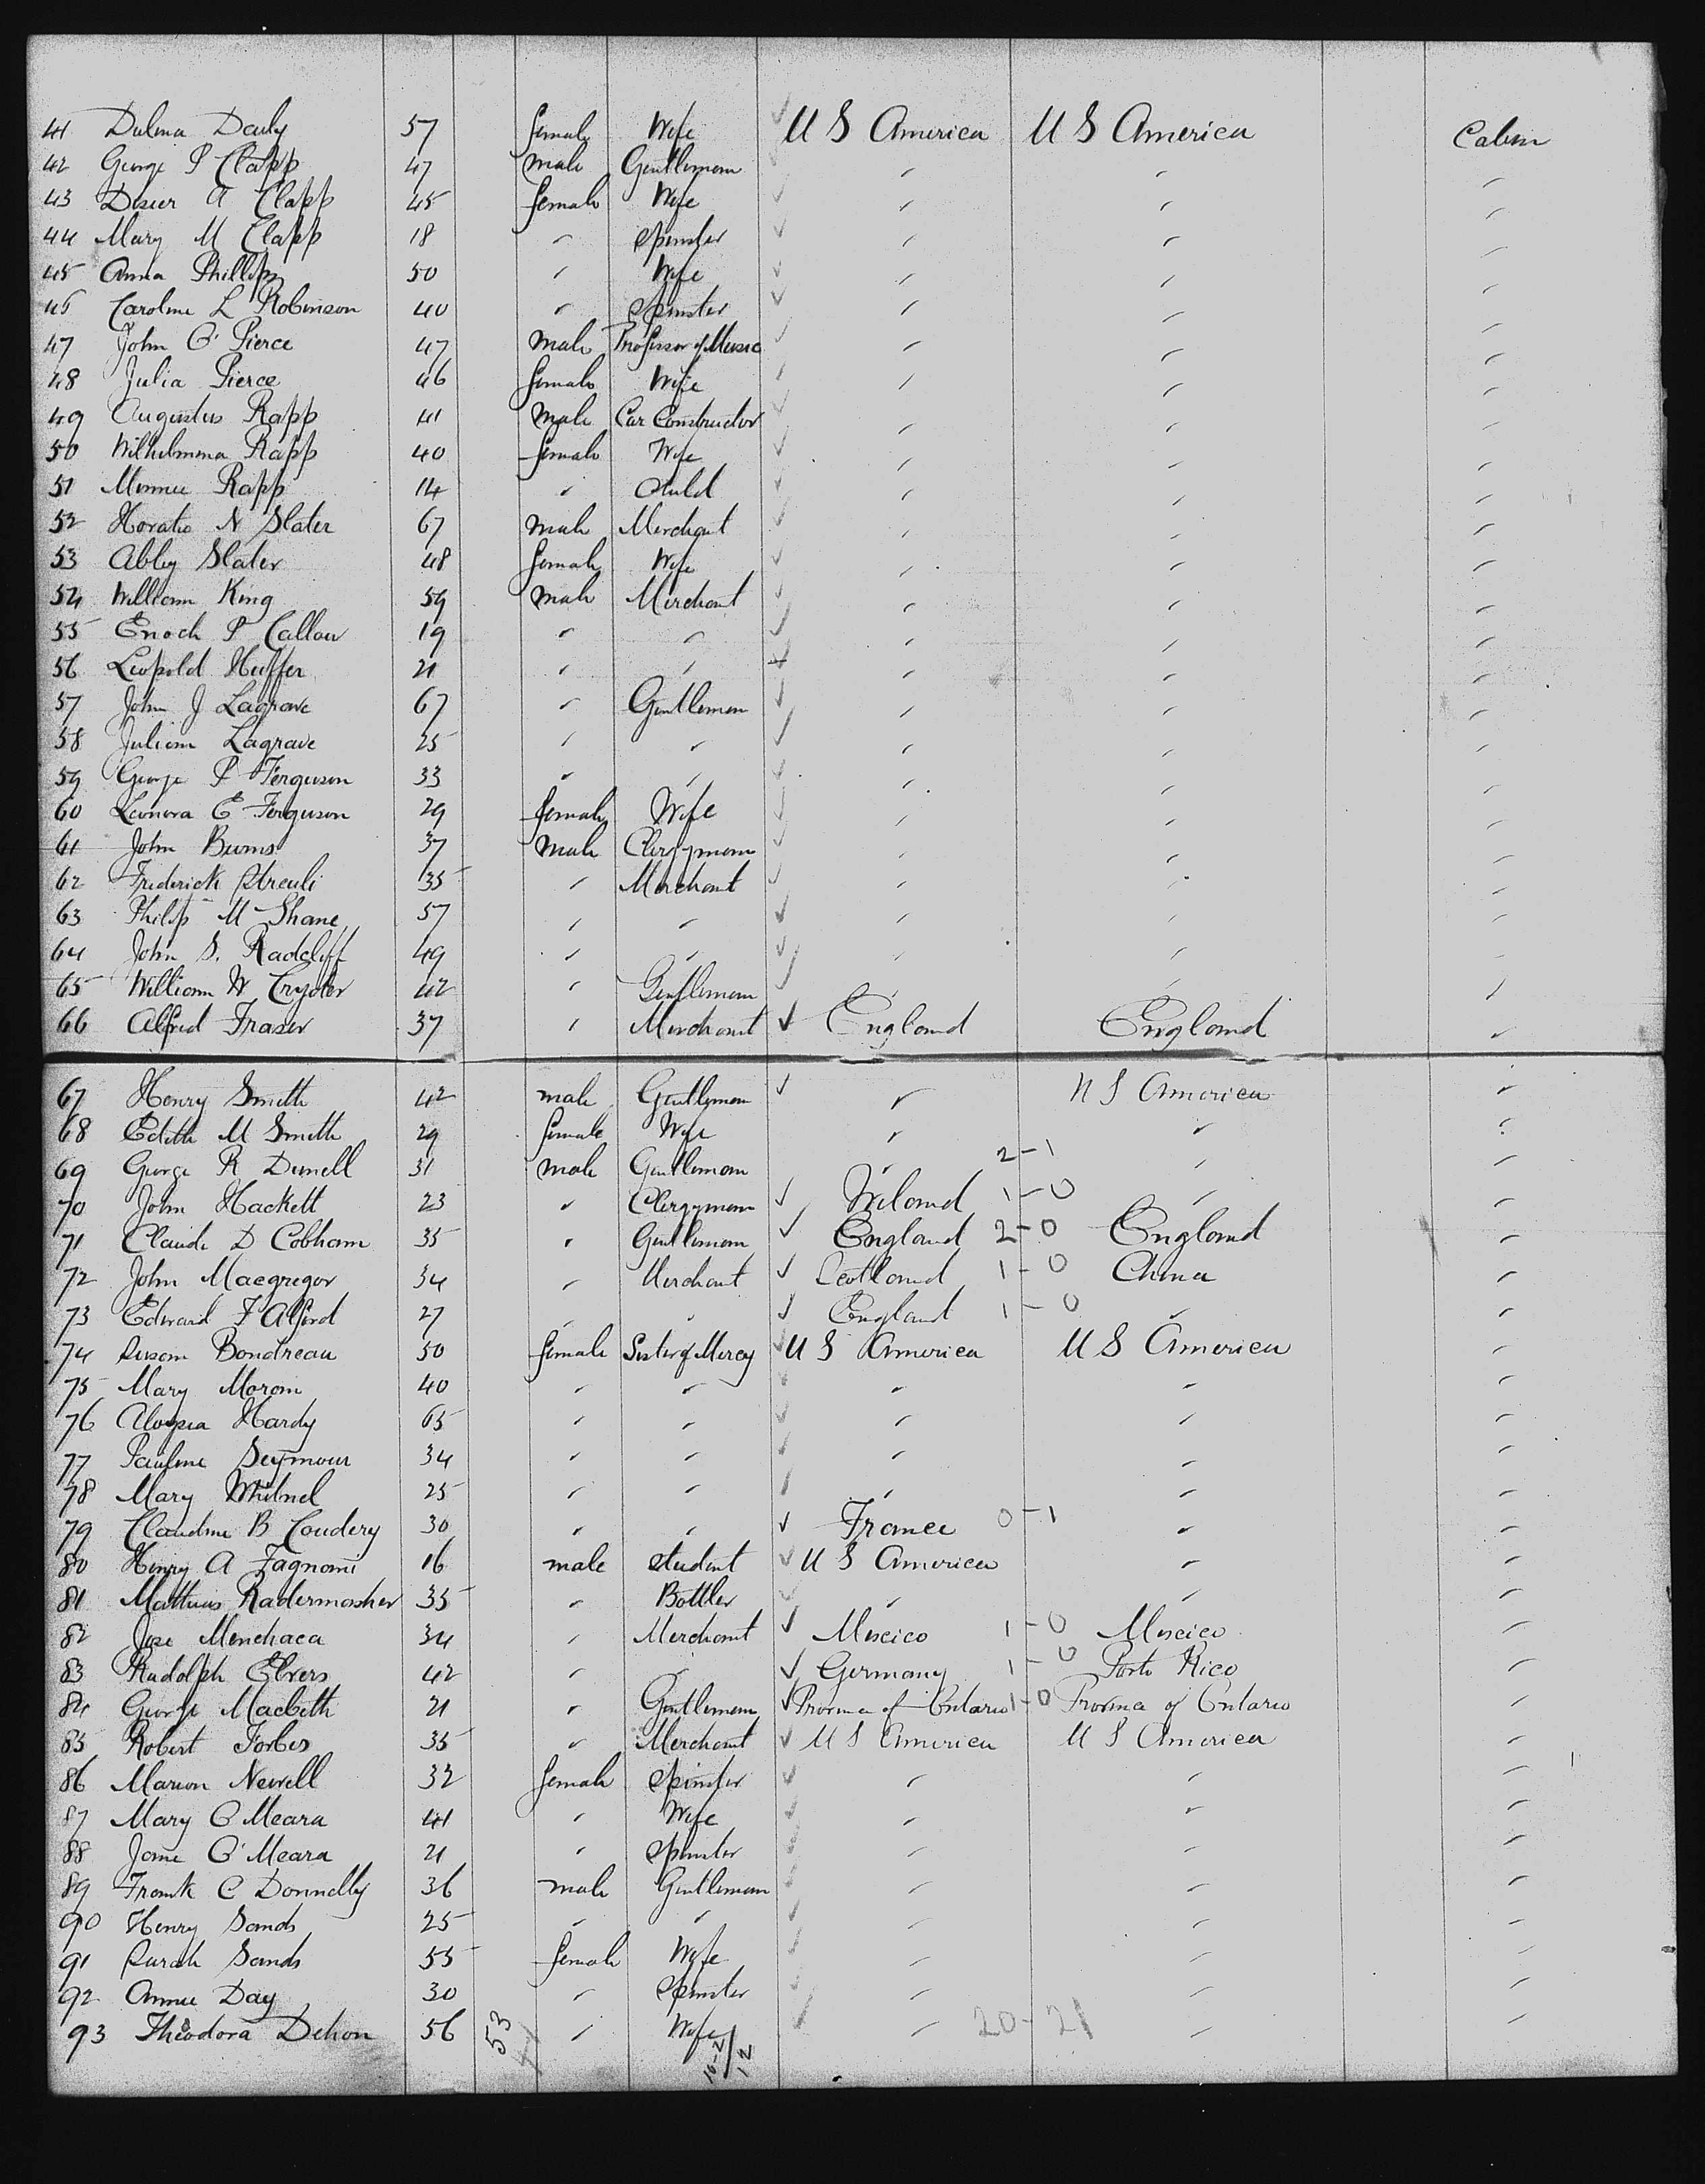 41 Dulina Dauly 57 female Wife U S America U S America Cabin
42 George P Clapp 47 male Gentleman " " "
43 A Clapp 45 female Wife " " "
44 Mary M Clapp 18 " Spinster " " "
45 Anna Phillips 50 " Wife " " "
46 Caroline L Robinson 40 " Spinster " " "
47 John O Pierce 47 male Professor of Music " " "
48 Julia Pierce 46 female Wife " " "
49 Augustus Rapp 41 male Car Constructor " " "
50 Wilhelmina Rapp 40 female Wife " " "
51 Minnie Rapp 14 " Child " " "
52 Horatio N Slater 67 male Merchant " " "
53 Abby Slater 48 female Wife " " "
54 William King 59 male Merchant " " "
55 Enoch P Callow 19 " " " " "
56 Leopold Huffer 21 " " " " "
57 John J Lagrave 67 " Gentleman " " "
58 Juliam Lagrave 25 " " " " "
59 George P Ferguson 33 " " " " "
60 Leonora E Ferguson 29 female Wife " " "
61 John Burns 37 male Clergyman " " "
62 Frederick Streuli 35 " Merchant " " "
63 Philip M Shane 57 " " " " "
64 John S. Radcliff 49 " " " " "
65 William W Cryder 42 " Gentleman " " "
66 Alfred Fraser 37 " Merchant England England "
67 Henry Smith 42 male Gentleman " U S America "
68 Edith M Smith 29 female Wife " " "
69 George R Dunell 31 male Gentleman " 2-1 " "
70 John Hackett 23 " Clergyman Ireland 1-0 " "
71 Claude D Cobham 35 " Gentleman England 2-0 England "
72 John Macgregor 34 " Merchant Scotland 1-0 China "
73 Edward F Alford 27 " " England 1-0 " "
74 Susan Bondreau 50 female Sister of Mercy U S America U S America "
75 Mary Moran 40 " " " " "
76 Aloysia Hardy 65 " " " " "
77 Pauline Seymour 34 " " " " "
78 Mary 25 " " " " "
79 Claudine B Coudery 30 " " France 0-1 " "
80 Henry A Fagnani 16 male Student U S America " "
81 Mathias Radermosher 35 " Bottler " " "
82 Jose Menchaca 34 " Merchant Mexico 1-0 Mexico "
83 Rudolph Elvers 42 " " Germany 1-0 Porto Rico "
84 George Macbeth 21 " Gentleman Province of Ontario 1-0 Province of Ontario "
85 Robert Forbes 35 " Merchant U S America U S America "
86 Marion Newell 32 female Spinster " " "
87 Mary O'Meara 41 " Wife " " "
88 Jane O'Meara 21 " Spinster " " "
89 Frank C Donnelly 36 male Gentleman " " "
90 Henry Sands 25 " " " " "
91 Sarah Sands 55 female Wife " " "
92 Annie Day 30 " Spinster " " "
93 Theodora Dehon 56 53 " Wife " 20-21 " "